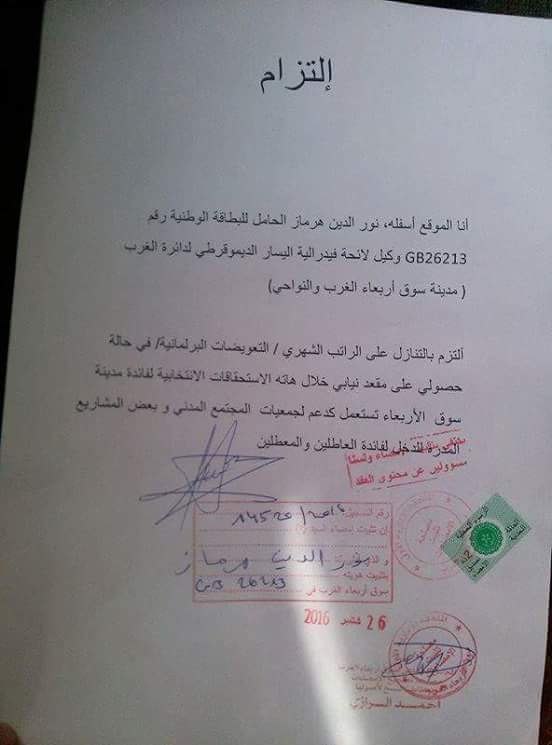 إلتزام
أنا الموقع أسفله، نور الدين هرماز الحامل للبطاقة الوطنية رقم
GB26213 وكيل لائحة فيدرالية اليسار الديموقرطي لدائرة الغرب
( مدينة سوق أربعاء الغرب والنواحي)
ألتزم بالتنازل على الراتب الشهري / التعويضات البرلمانية/ في حالة
حصولي على مقعد نيابي خلال هاته الاستحقاقات الانتخابية لفائدة مدينة
سوق الأربعاء تستعمل كدعم لجمعيات المجتمع المدني و بعض المشاريع
المدرة للدخل لفائدة العاطلين والمعطلين
مسؤولين عن محتوى العقد
رقم التسجيل
نور الدين هرماز
بتثبيت هويته
GB 26213
سوق أربعاء الغرب في
26 شتنبر 2016
احمد السرازي